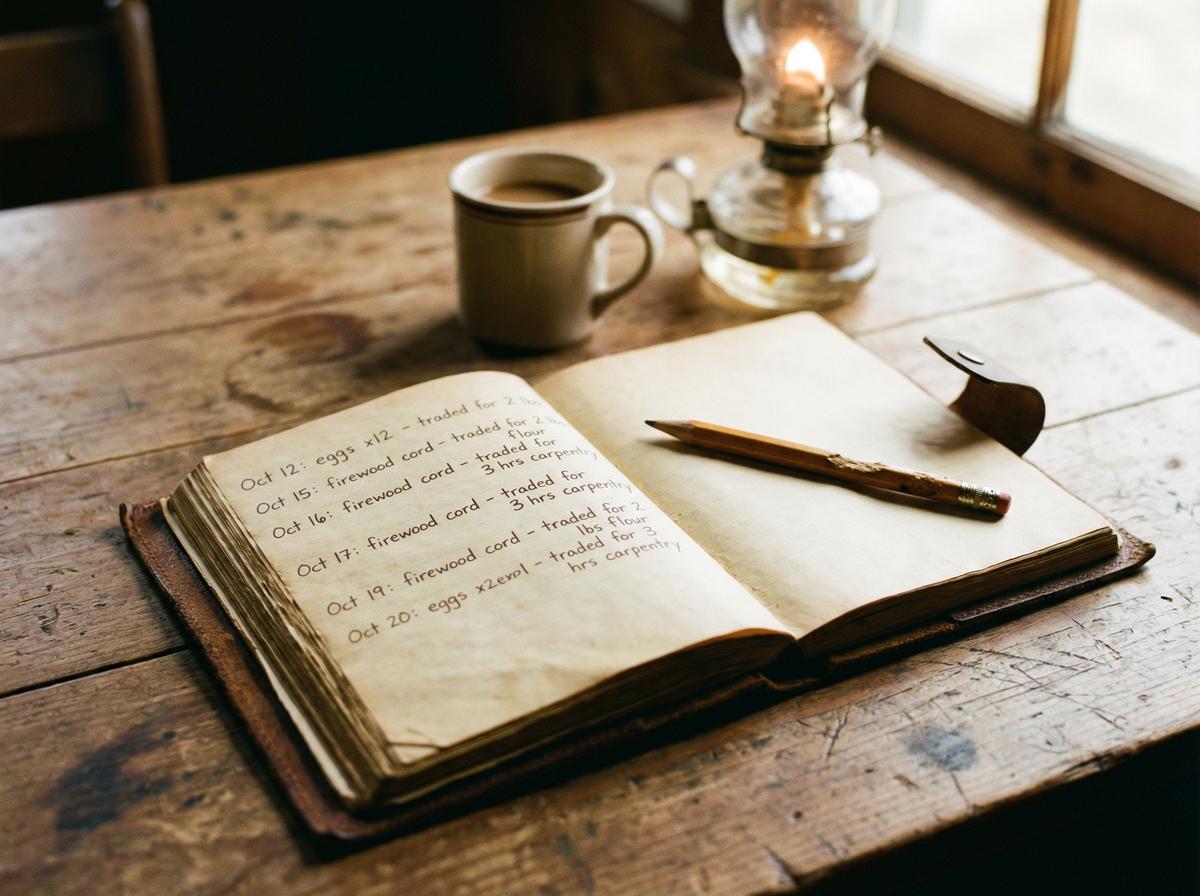 Oct 12: eggs x12 - traded for 2 lbs
Oct 15: firewood cord - traded for 2 lbs
flour
Oct 16: firewood cord - traded for
3 hrs carpentry
Oct 17: firewood cord - traded for
3 hrs carpentry
Oct 19: firewood cord - traded for 2
lbs flour
Oct 20: eggs - traded for 3
hrs carpentry